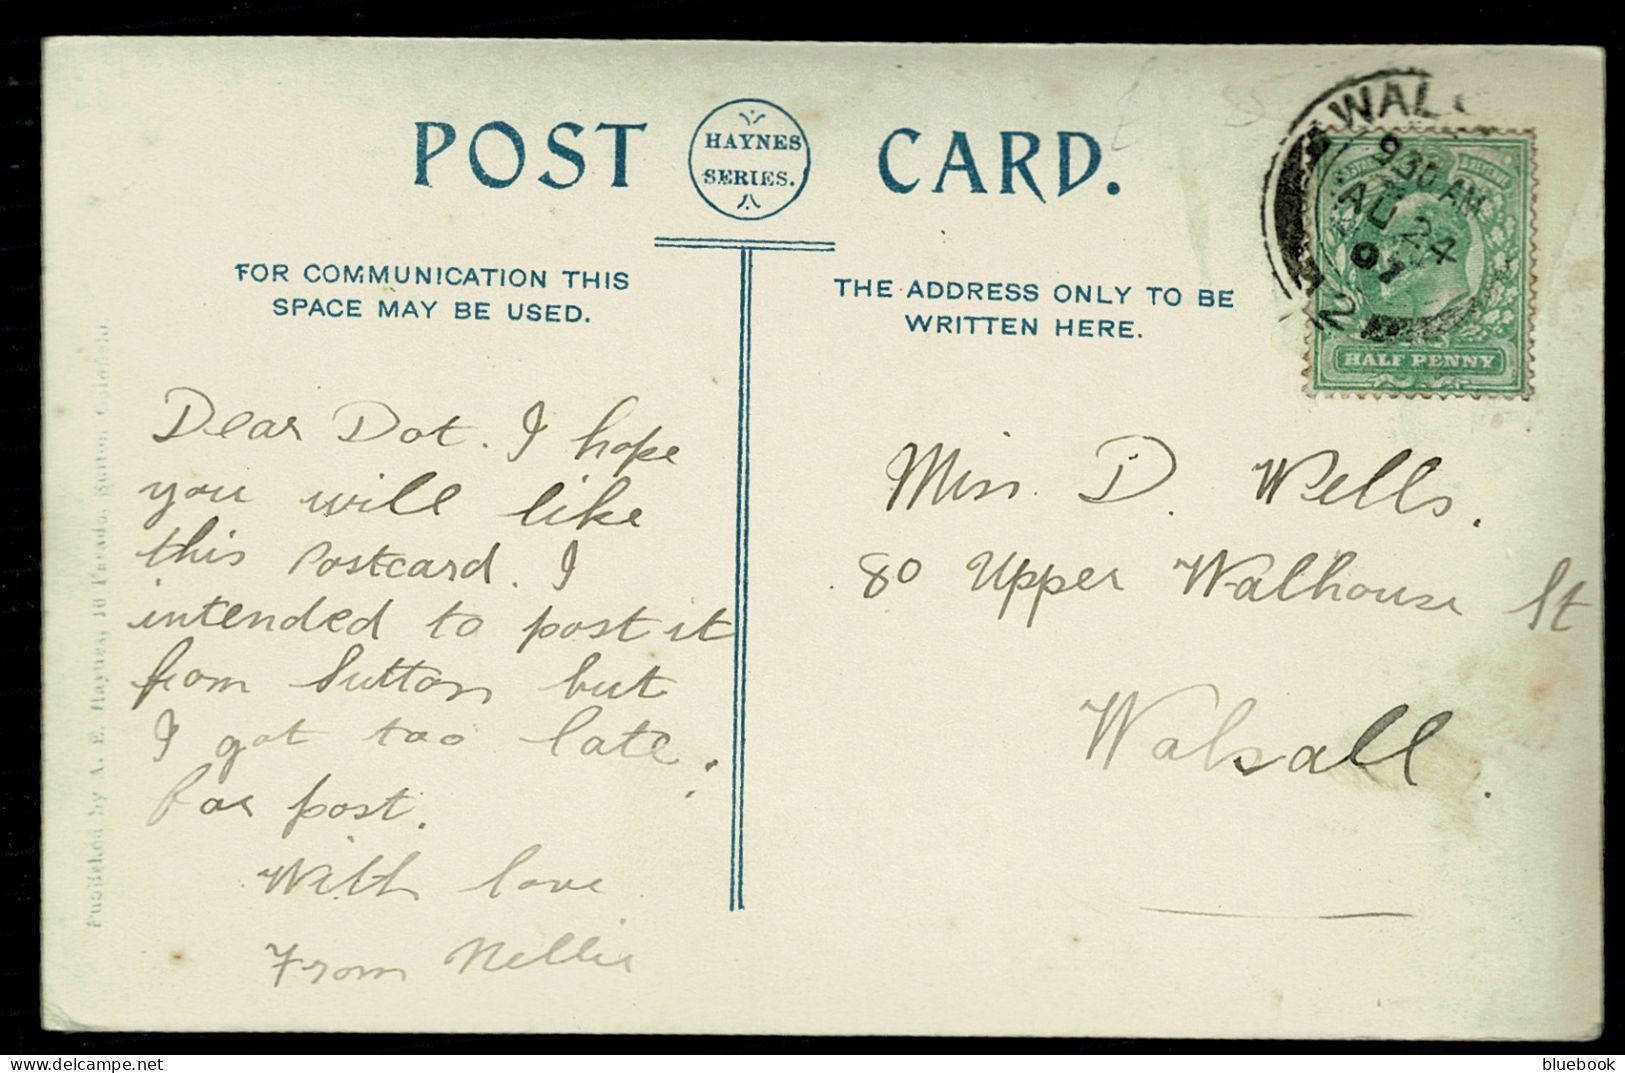 POST CARD.
HAYNES
SERIES.
FOR COMMUNICATION THIS
SPACE MAY BE USED.
THE ADDRESS ONLY TO BE
WRITTEN HERE.
WAL
9 30 AM
AU 24
07
HALF PENNY
Dear Dot. I hope
you will like
this Postcard. I
intended to post it
from Sutton but
I got too late.
for post.
With love
From Nellie
Miss. D. Wells.
80 Upper Walhouse St
Walsall.
Published by A. E. Haynes, 10 Parade, Sutton Coldfield.
bluebook